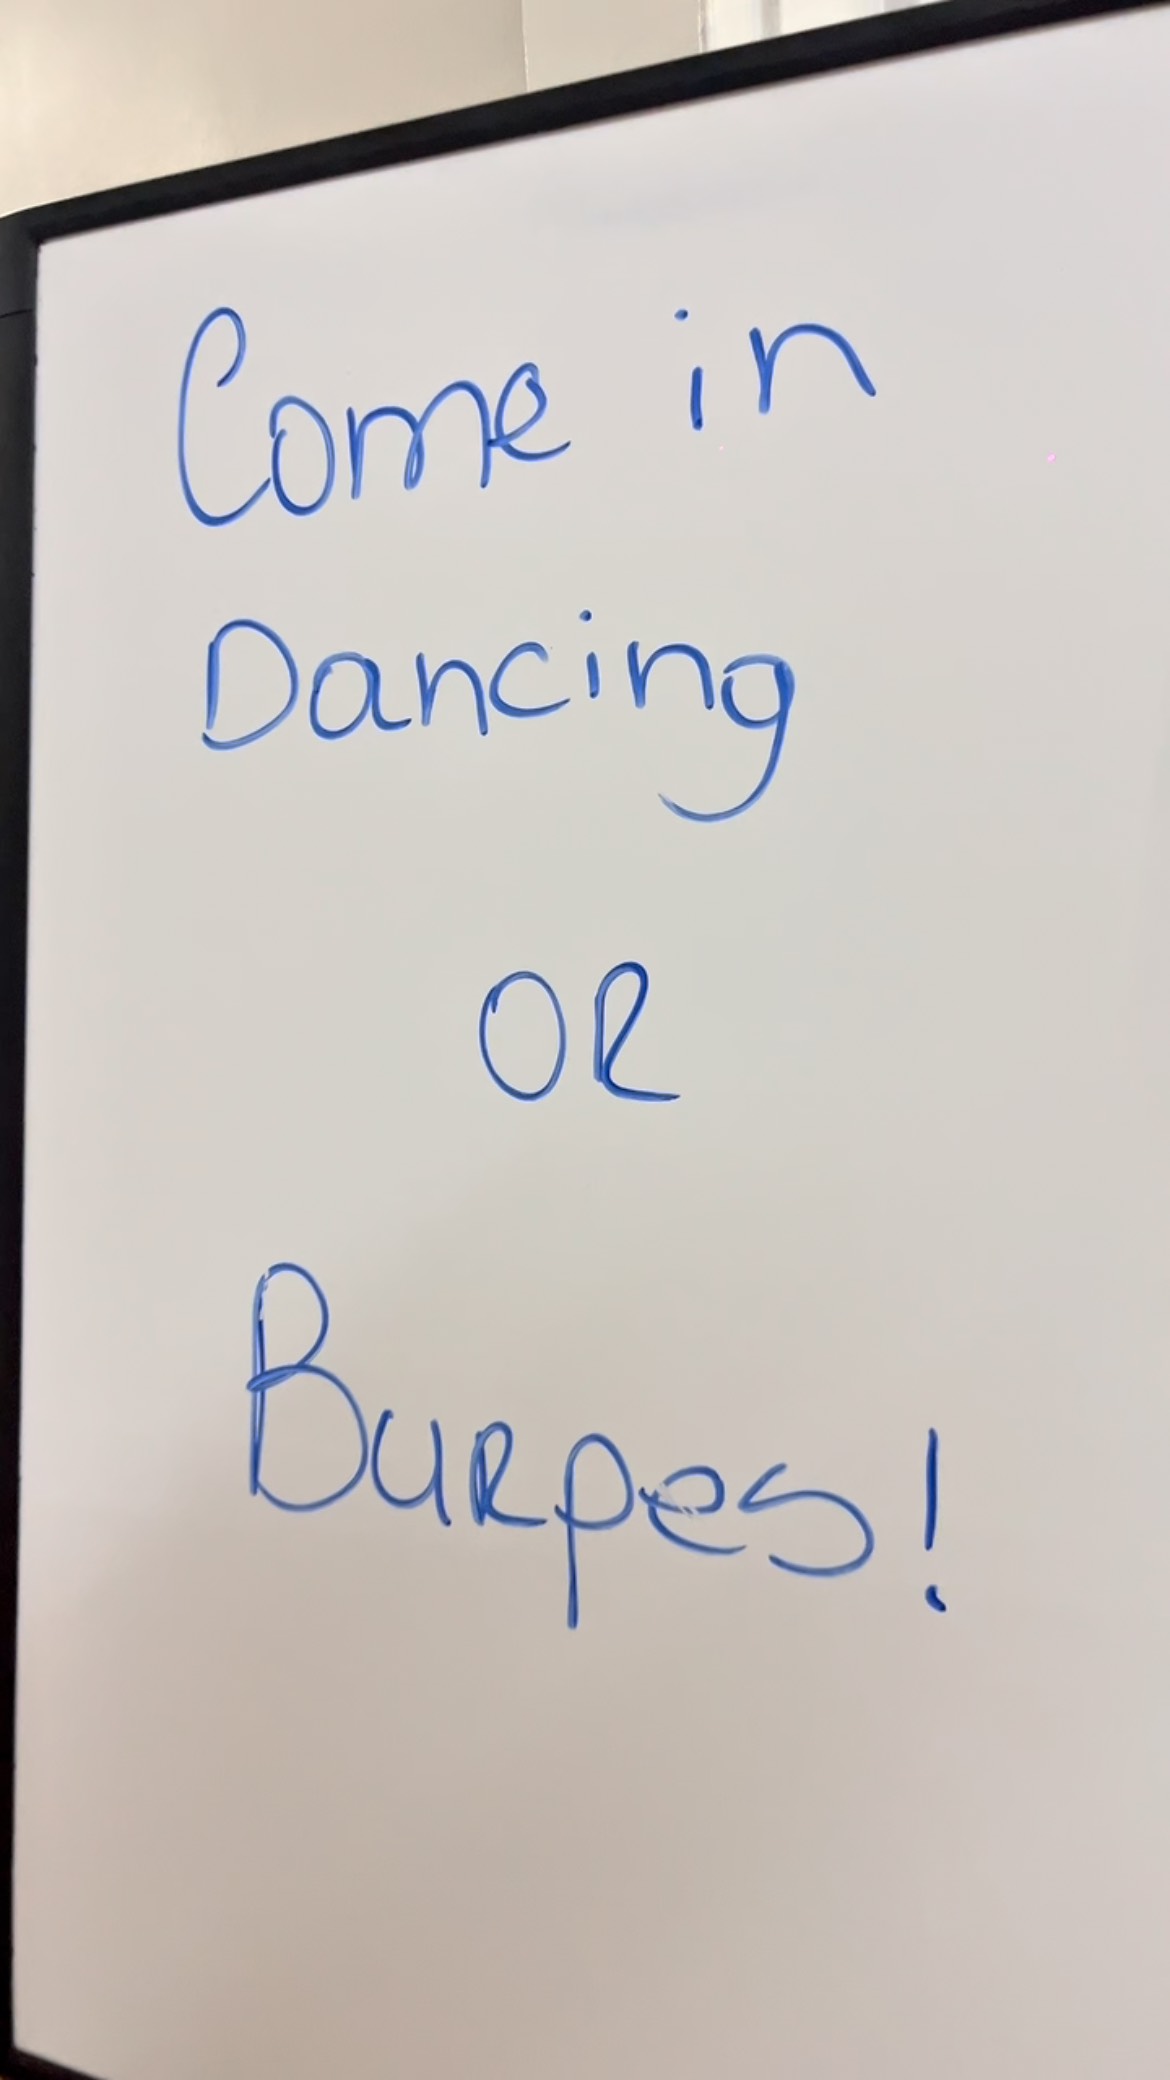 Come in
Dancing
OR
Burpes!